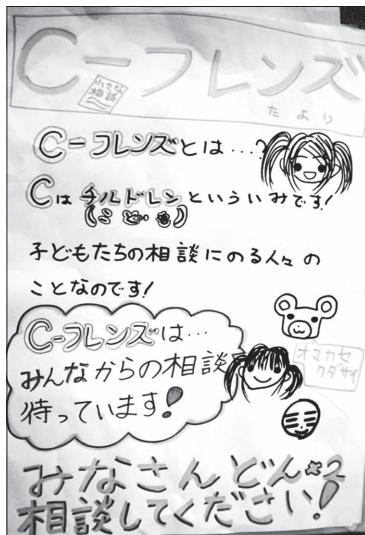 C-フレンズ
小さな
相談
たより
C-フレンズとは…?
Cはチルドレンといういみです!
(こども)
子どもたちの相談にのる人々の
ことなのです!
C-フレンズは…
みんなからの相談
待っています!
オマカセ
クダサイ
みなさんどん×2
相談してください!